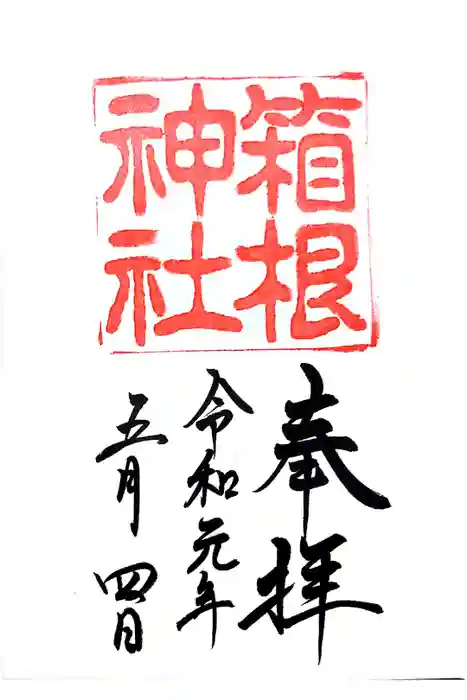 箱根
神社
奉拝
令和元年
五月四日